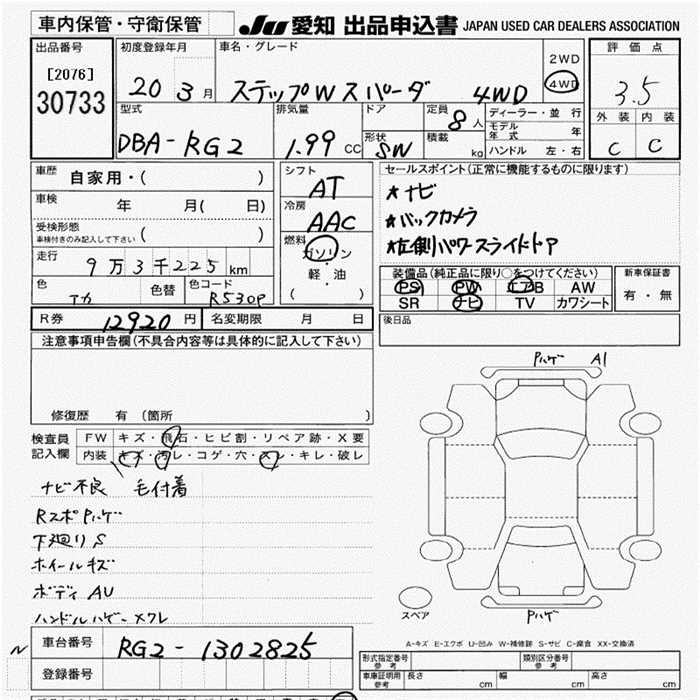 車内保管・守衛保管
JU 愛知 出品申込書 JAPAN USED CAR DEALERS ASSOCIATION
出品番号
[2076]
30733
初度登録年月
20 3 月
車名・グレード
ステップW スパーダ 4WD
2WD
4WD
評価点
3.5
外装 内装
C C
型式
DBA-RG2
排気量
1.99 CC
ドア
形状
SW
定員
8 人
積載
kg
ディーラー・並行
モデル年式 年
ハンドル 左・右
車歴 自家用・( )
車検 年 月( 日)
受検形態
車検付きのみ記入して下さい ( )
走行 9万3千225 km
色 アカ 色替
色コード
R530P
シフト
AT
冷房
AAC
燃料
ガソリン
・
軽・油
( )
セールスポイント(正常に機能するものに限ります)
★ナビ
★バックカメラ
★左側パワースライドドア
装備品(純正品に限り○をつけてください)
PS PW エアB AW
SR ナビ TV カワシート
新車保証書
有・無
R券 12920 円
名変期限 月 日
後日品
注意事項申告欄(不具合内容等は具体的に記入して下さい)
修復歴 有(箇所 )
検査員
記入欄
FW キズ・飛石・ヒビ割・リペア跡・X要
内装 キズ・汚レ・コゲ・穴・スレ・キレ・破レ
ナビ不良 毛付着
RスポPハゲ
下廻りS
ホイールキズ
ボディAU
ハンドルハゲ
Pハゲ A1
スペア
Pハゲ
A-キズ E-エクボ U-凹み W-補修跡 S-サビ C-腐食 XX-交換済
N
車台番号 RG2-1302825
登録番号
形式指定番号
参考
類別区分番号
参考
車庫証明用
参考
長さ cm 幅 cm 高さ cm